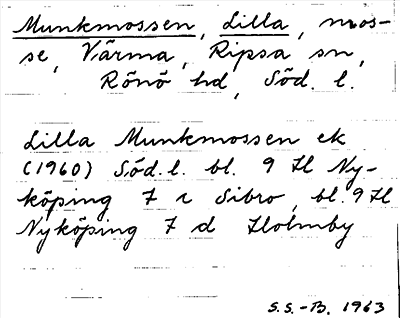 Munkmossen, Lilla, mos-
se, Värma, Ripsa sn,
Rönö hd, Söd. l.
Lilla Munkmossen ek
(1960) Söd. l. bl. 9 H Ny-
köping 7 c Sibro, bl. 9 H
Nyköping 7 d Holmby
S.S.-B. 1963